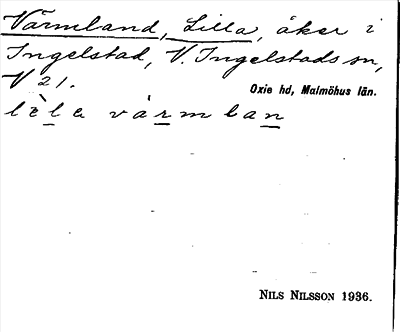 Värmland, Lilla, åker i
Ingelstad, V. Ingelstads sn,
V 21.
Oxie hd, Malmöhus län.
lèla värmlan
NILS NILSSON 1936.